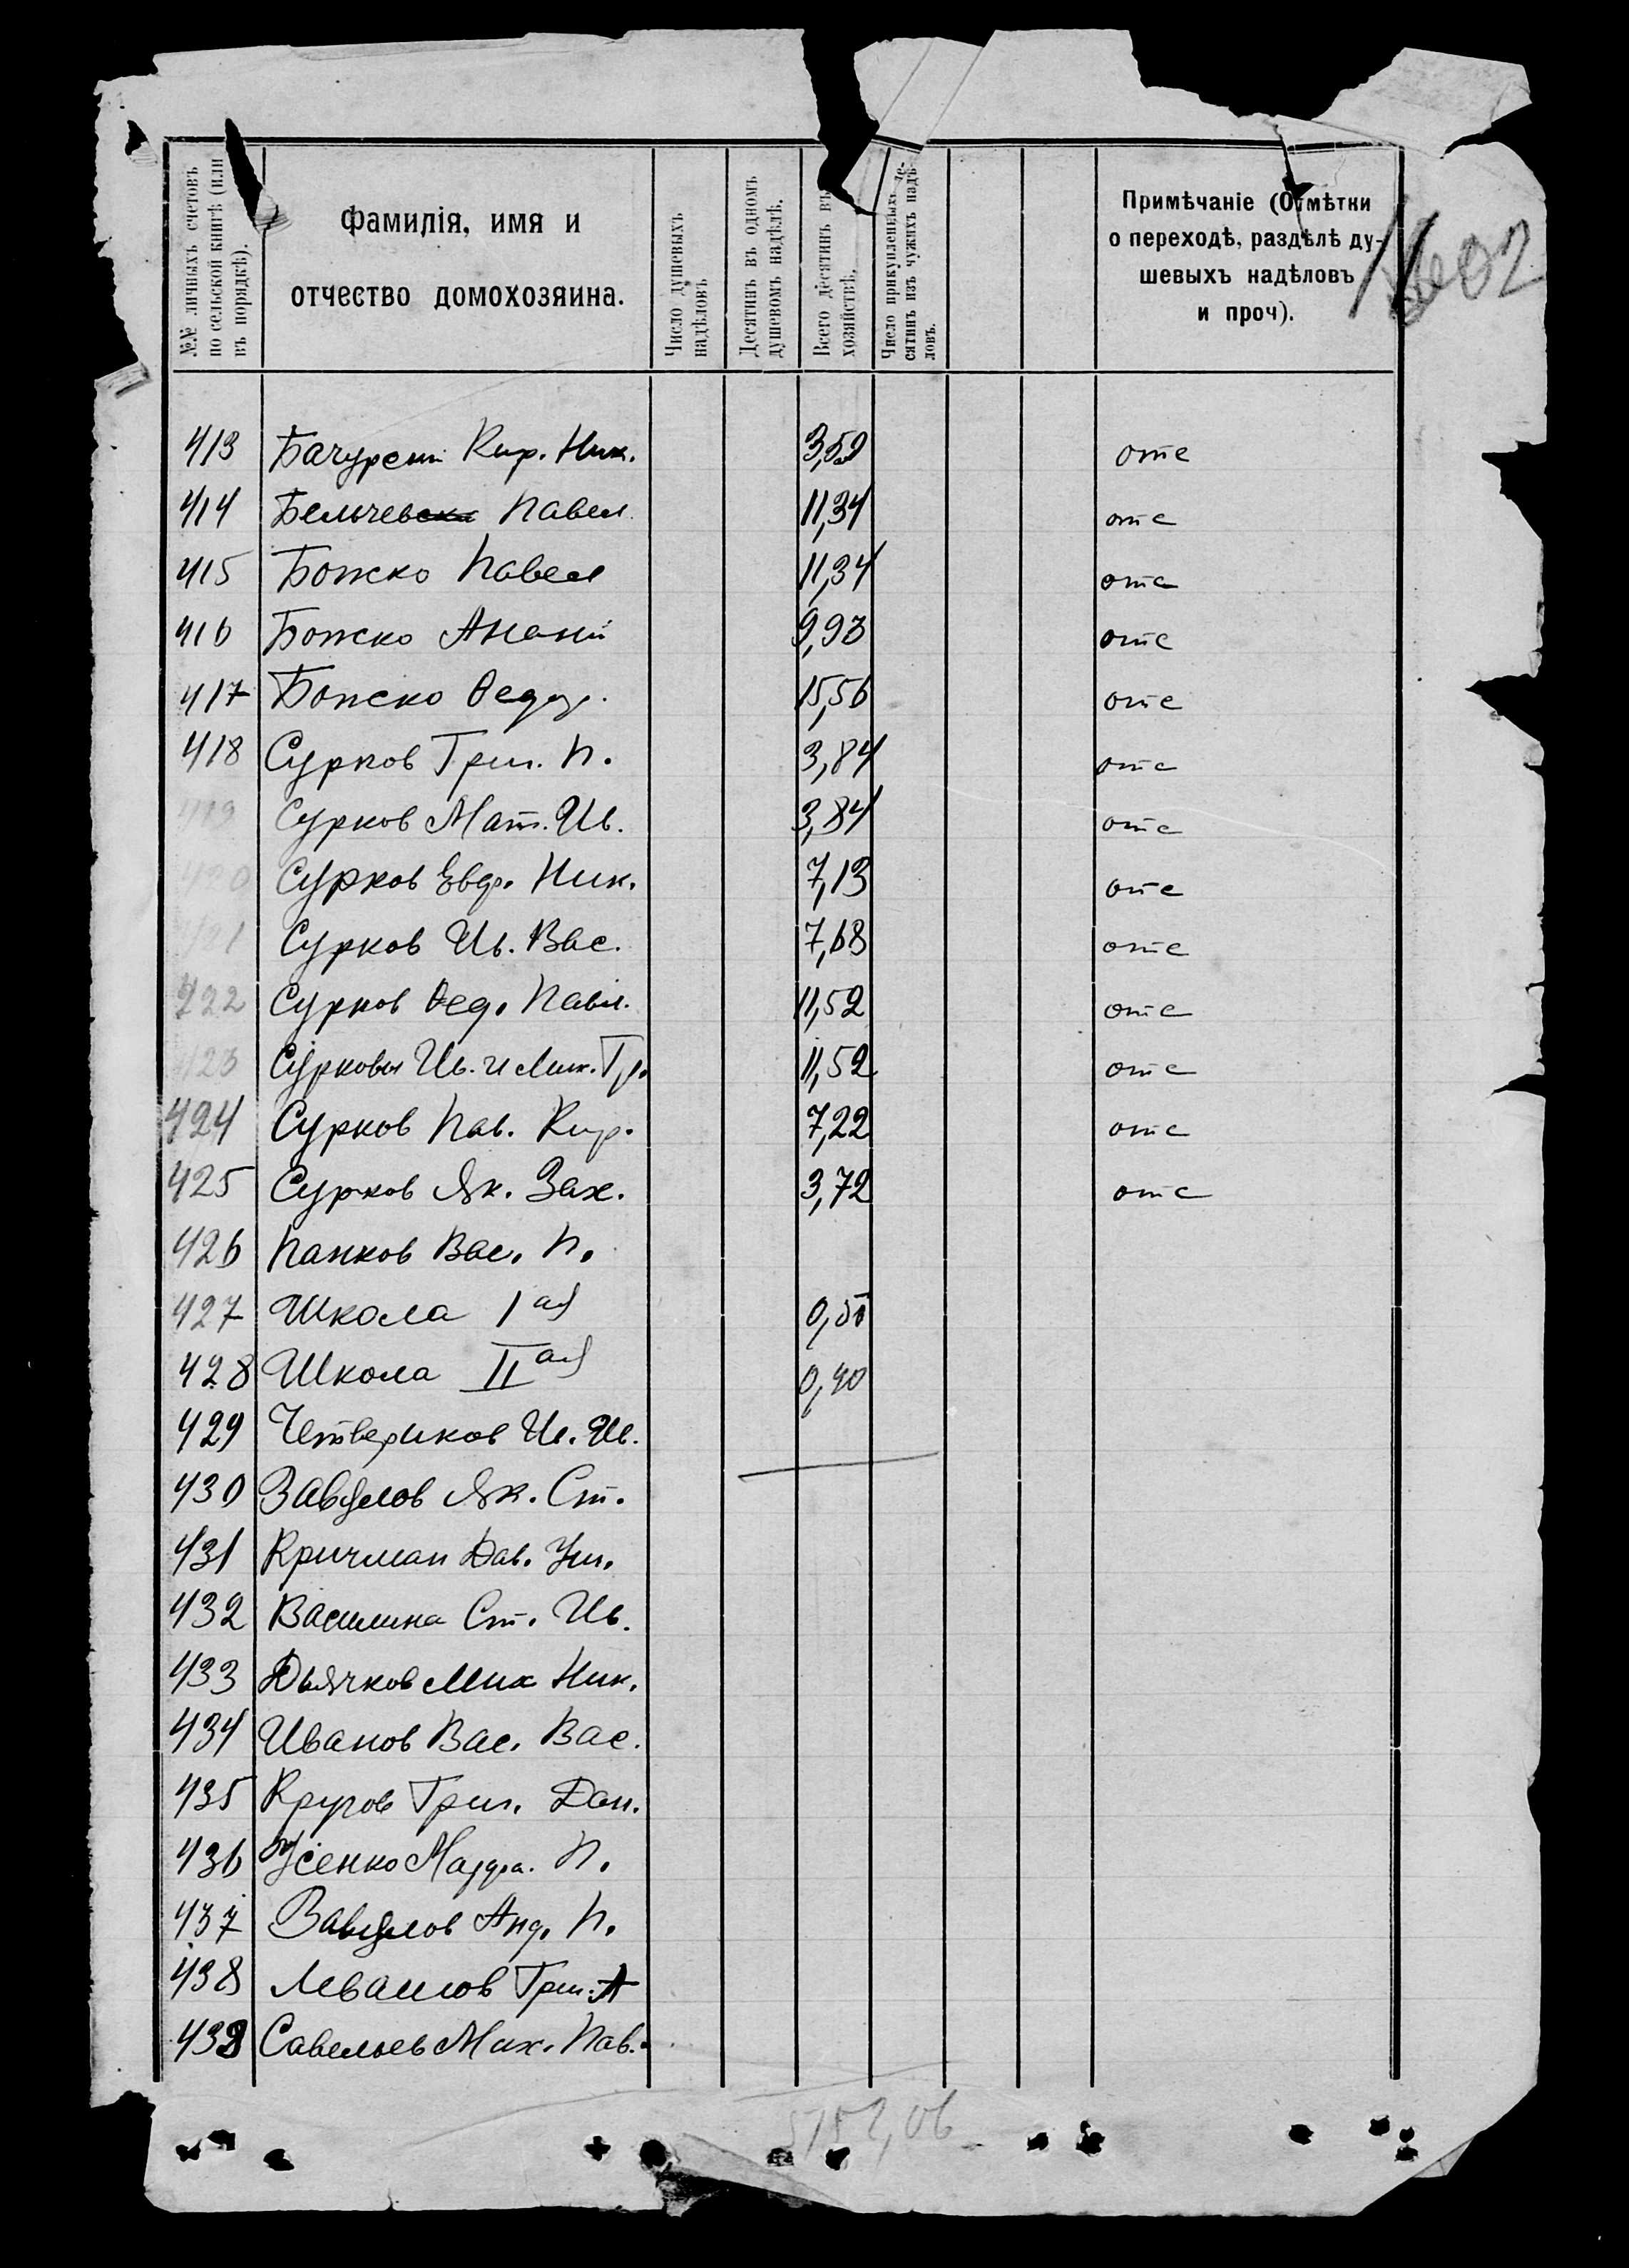 №№ личныхъ счетовъ по сельской книгѣ (или въ порядкѣ).
Фамилія, имя и отчество домохозяина.
Число душевыхъ надѣловъ
Десятинъ въ одномъ душевомъ надѣлѣ.
Всего десятинъ въ хозяйствѣ.
Число прикупленныхъ де-сятинъ изъ чужихъ надѣ-ловъ.
Примѣчаніе (Отмѣтки
о переходѣ, раздѣлѣ ду-
шевыхъ надѣловъ
и проч).
413 Кир. Ник. 3,59 отс
414 Павел 11,34 отс
415 Божко Павел 11,34 отс
416 Божко Анани 9,93 отс
417 Божко Ѳедор. 15,56 отс
418 Сурков Григ. П. 3,84 отс
419 Сурков Мат. Ив. 3,84 отс
420 Сурков Евд. Ник. 7,13 отс
421 Сурков Ив. Вас. 7,68 отс
422 Сурков Ѳед. Павл. 11,52 отс
423 Сурковы Ив. и Мих. Гр. 11,52 отс
424 Сурков Пав. Кир. 7,22 отс
425 Сурков Як. Зах. 3,72 отс
426 Панков Вас. П.
427 Школа I ая
428 Школа II ая 0,40
429 Четвериков Ив. Ив.
430 Завялов Як. Ст.
431 Кричман Дав.
432 Василина Ст. Ив.
433 Дьячков Мих Ник.
434 Иванов Вас. Вас.
435 Кругов Григ. Дан.
436 П.
437 Завялов Анд. П.
438 Левашов Григ. А
439 Савельев Мих. Пав.